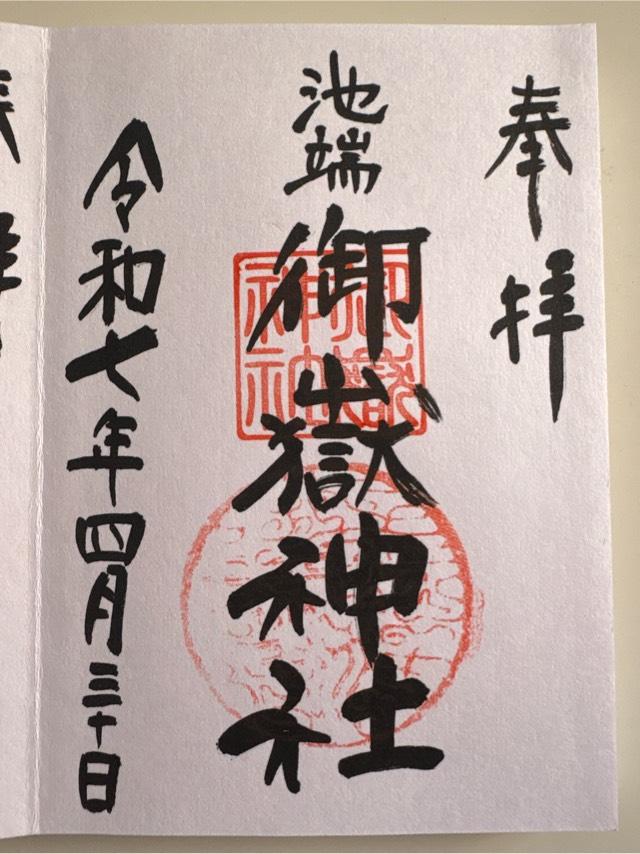 奉拝
池端
御嶽神社
御嶽神社
令和七年四月三十日